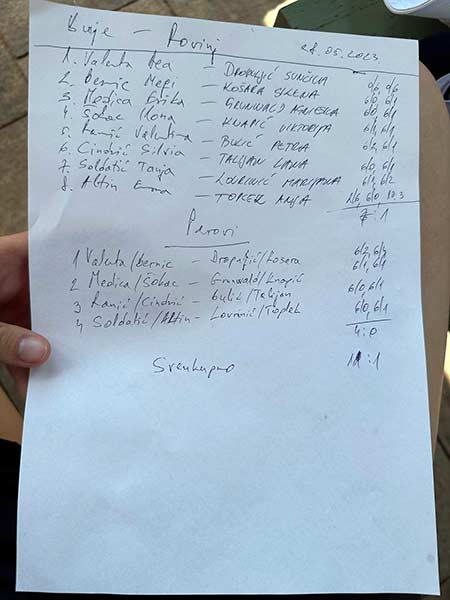 Buje - Rovinj 28.05.2023
1. Valenta Bea - DROPULJIĆ SUNČICA 0/6, 0/6
2. Bernic Megi - KOŠARA SILENA 6/0, 6/1
3. Medica Erika - GRUNWALD AGNIESKA 6/0, 6/1
4. Šokac Ilona - KNAPIĆ VIKTORIJA 6/1, 6/1
5. Ranić Valentina - BULIĆ PETRA 6/2, 6/1
6. Cindrić Silvia - TALIJAN LANA 6/0, 6/1
7. Soldatić Tanja - LOVRINIĆ MARIJANA 6/1, 6/2
8. Altin Ema - TOPEK ANJA 1/6, 6/0, 10:3
7:1
Parovi
1 Valenta/Bernic - Dropuljić/Kosara 6/2, 6/3
2 Medica/Šokac - Grunwald/Knapić 6/1, 6/1
3 Ranić/Cindrić - Bulić/Talijan 6/0, 6/1
4 Soldatić/Altin - Lovrinić/Topek 6/0, 6/1
4:0
Sveukupno 11:1